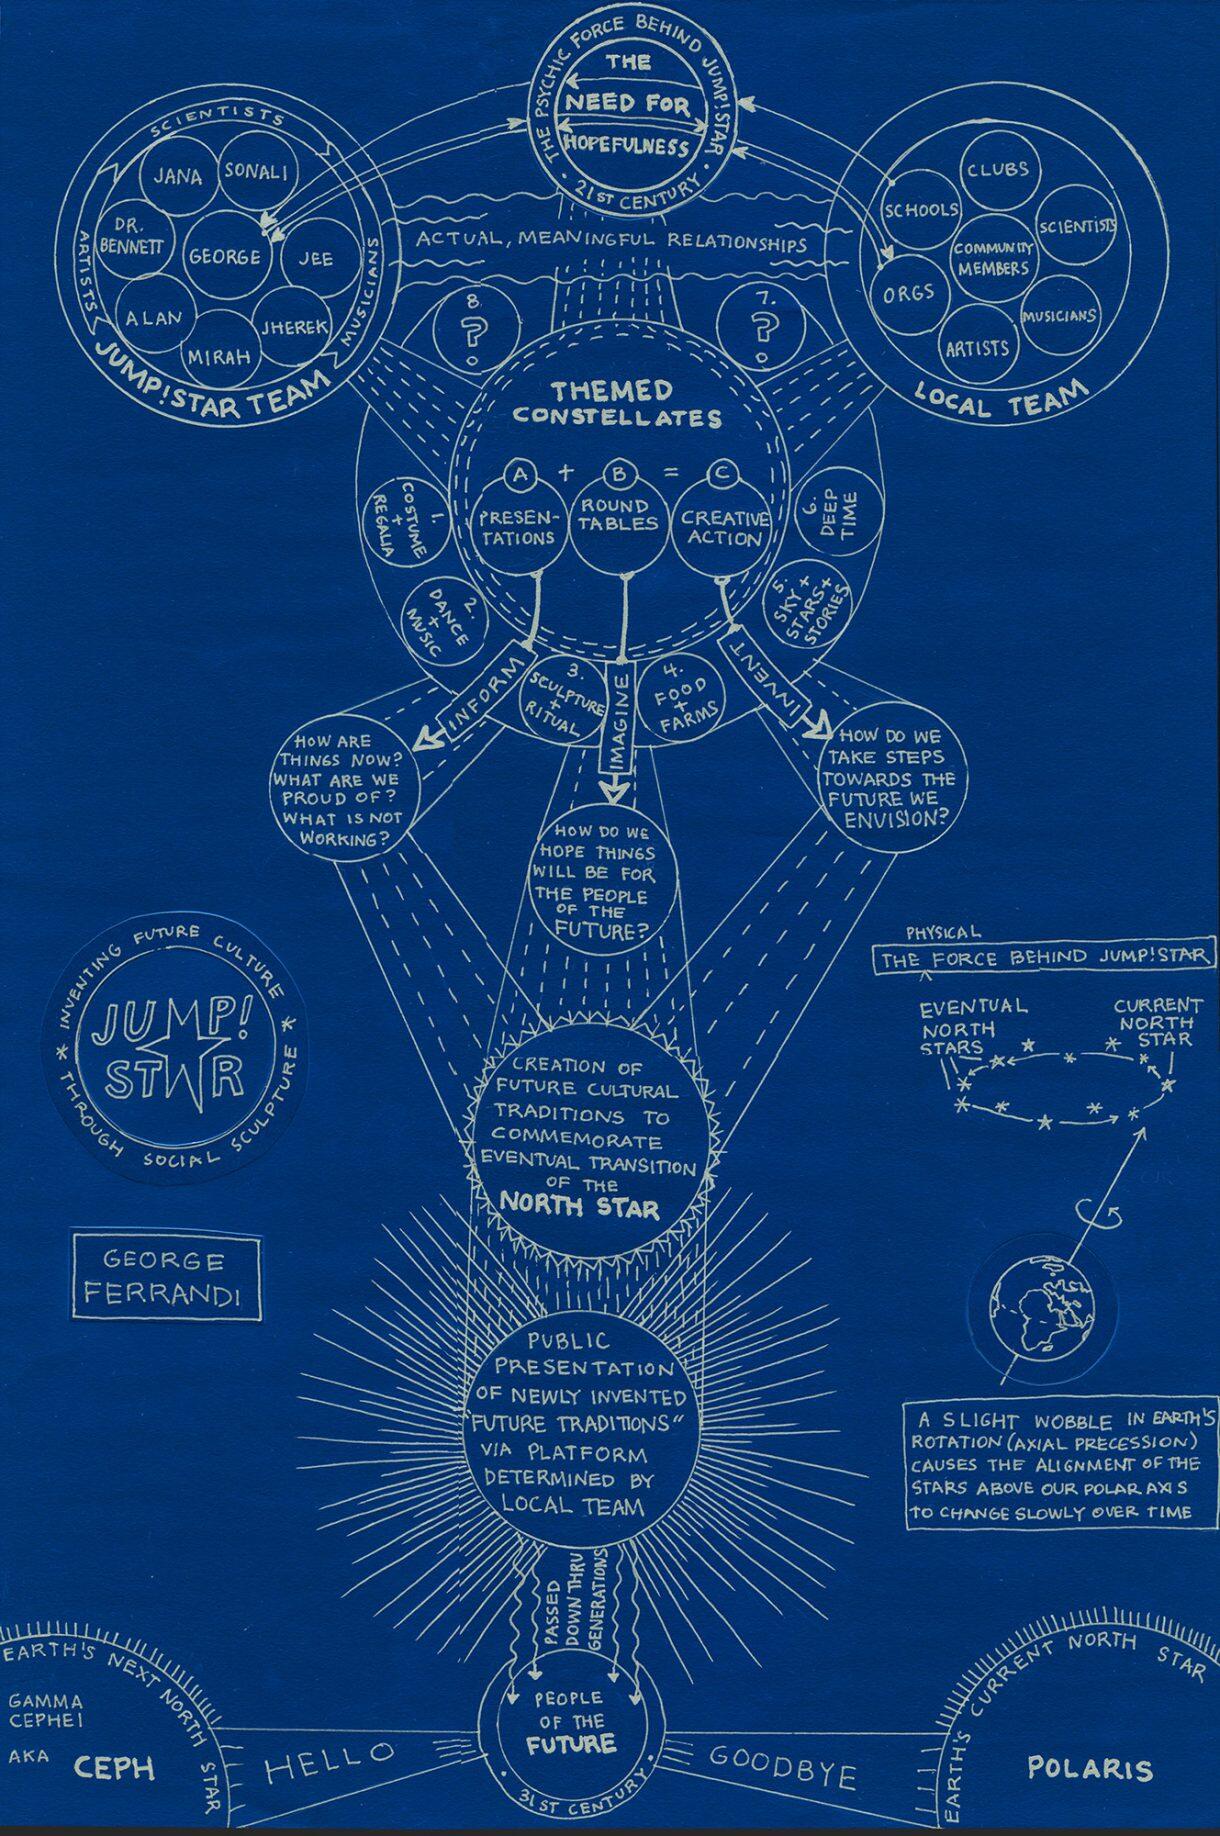 THE PSYCHIC FORCE BEHIND JUMP!STAR
• 21ST CENTURY •
THE
NEED FOR
HOPEFULNESS
SCIENTISTS
ARTISTS
MUSICIANS
JUMP!STAR TEAM
JANA
SONALI
DR.
BENNETT
GEORGE
JEE
ALAN
JHEREK
MIRAH
ACTUAL, MEANINGFUL RELATIONSHIPS
CLUBS
SCHOOLS
SCIENTISTS
COMMUNITY
MEMBERS
ORGS
MUSICIANS
ARTISTS
LOCAL TEAM
8.
?
7.
?
THEMED
CONSTELLATES
A + B = C
PRESEN-
TATIONS
ROUND
TABLES
CREATIVE
ACTION
1.
COSTUME
+
REGALIA
2.
DANCE
+
MUSIC
3.
SCULPTURE
+
RITUAL
4.
FOOD
+
FARMS
5.
SKY +
STARS +
STORIES
6.
DEEP
TIME
INFORM
IMAGINE
INVENT
HOW ARE
THINGS NOW?
WHAT ARE WE
PROUD OF?
WHAT IS NOT
WORKING?
HOW DO WE
HOPE THINGS
WILL BE FOR
THE PEOPLE
OF THE
FUTURE?
HOW DO WE
TAKE STEPS
TOWARDS THE
FUTURE WE
ENVISION?
* INVENTING FUTURE CULTURE *
THROUGH SOCIAL SCULPTURE
JUMP!
STAR
GEORGE
FERRANDI
CREATION OF
FUTURE CULTURAL
TRADITIONS TO
COMMEMORATE
EVENTUAL TRANSITION
OF THE
NORTH STAR
PHYSICAL
THE FORCE BEHIND JUMP!STAR
EVENTUAL
NORTH
STARS
CURRENT
NORTH
STAR
A SLIGHT WOBBLE IN EARTH'S
ROTATION (AXIAL PRECESSION)
CAUSES THE ALIGNMENT OF THE
STARS ABOVE OUR POLAR AXIS
TO CHANGE SLOWLY OVER TIME
PUBLIC
PRESENTATION
OF NEWLY INVENTED
"FUTURE TRADITIONS"
VIA PLATFORM
DETERMINED BY
LOCAL TEAM
PASSED
DOWN THRU
GENERATIONS
PEOPLE
OF THE
FUTURE
• 31ST CENTURY •
EARTH'S NEXT NORTH STAR
GAMMA
CEPHEI
AKA CEPH
HELLO
GOODBYE
EARTH'S CURRENT NORTH STAR
POLARIS